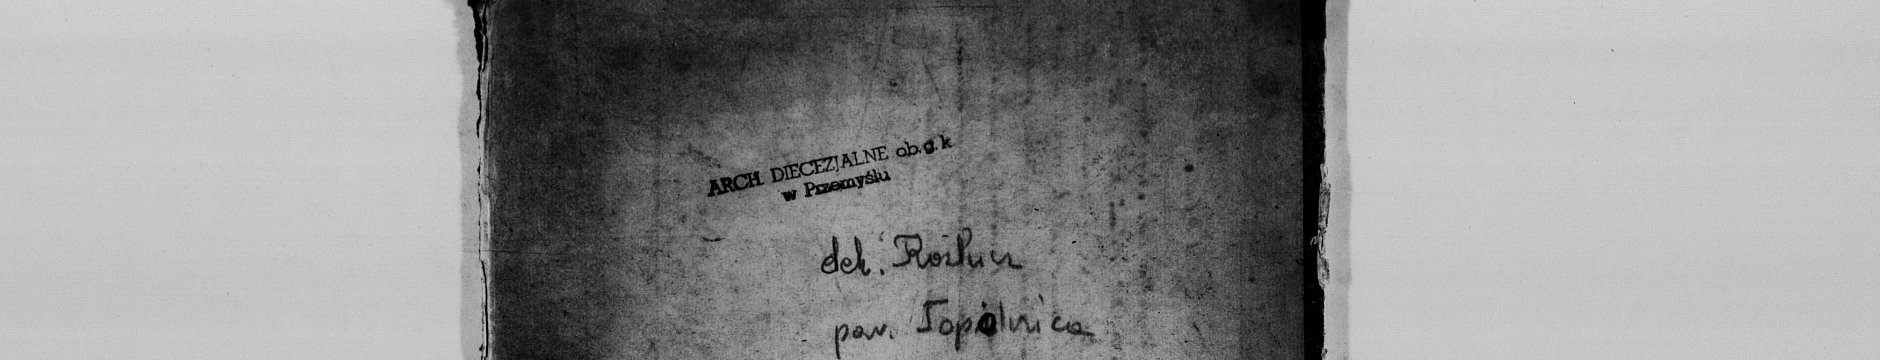 ARCH. DIECEZJALNE ob.g.k
w Przemyślu
dek. Rozłucz
par. Topolnica